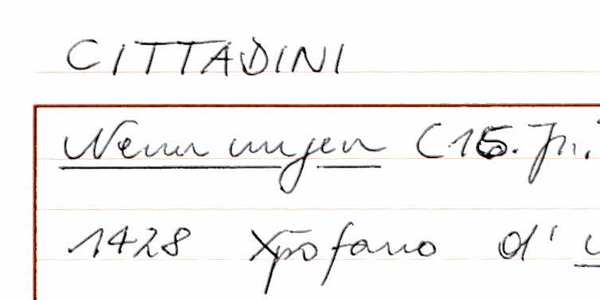 CITTADINI
Nennungen (15. Jh.
1428 Xpofano d'